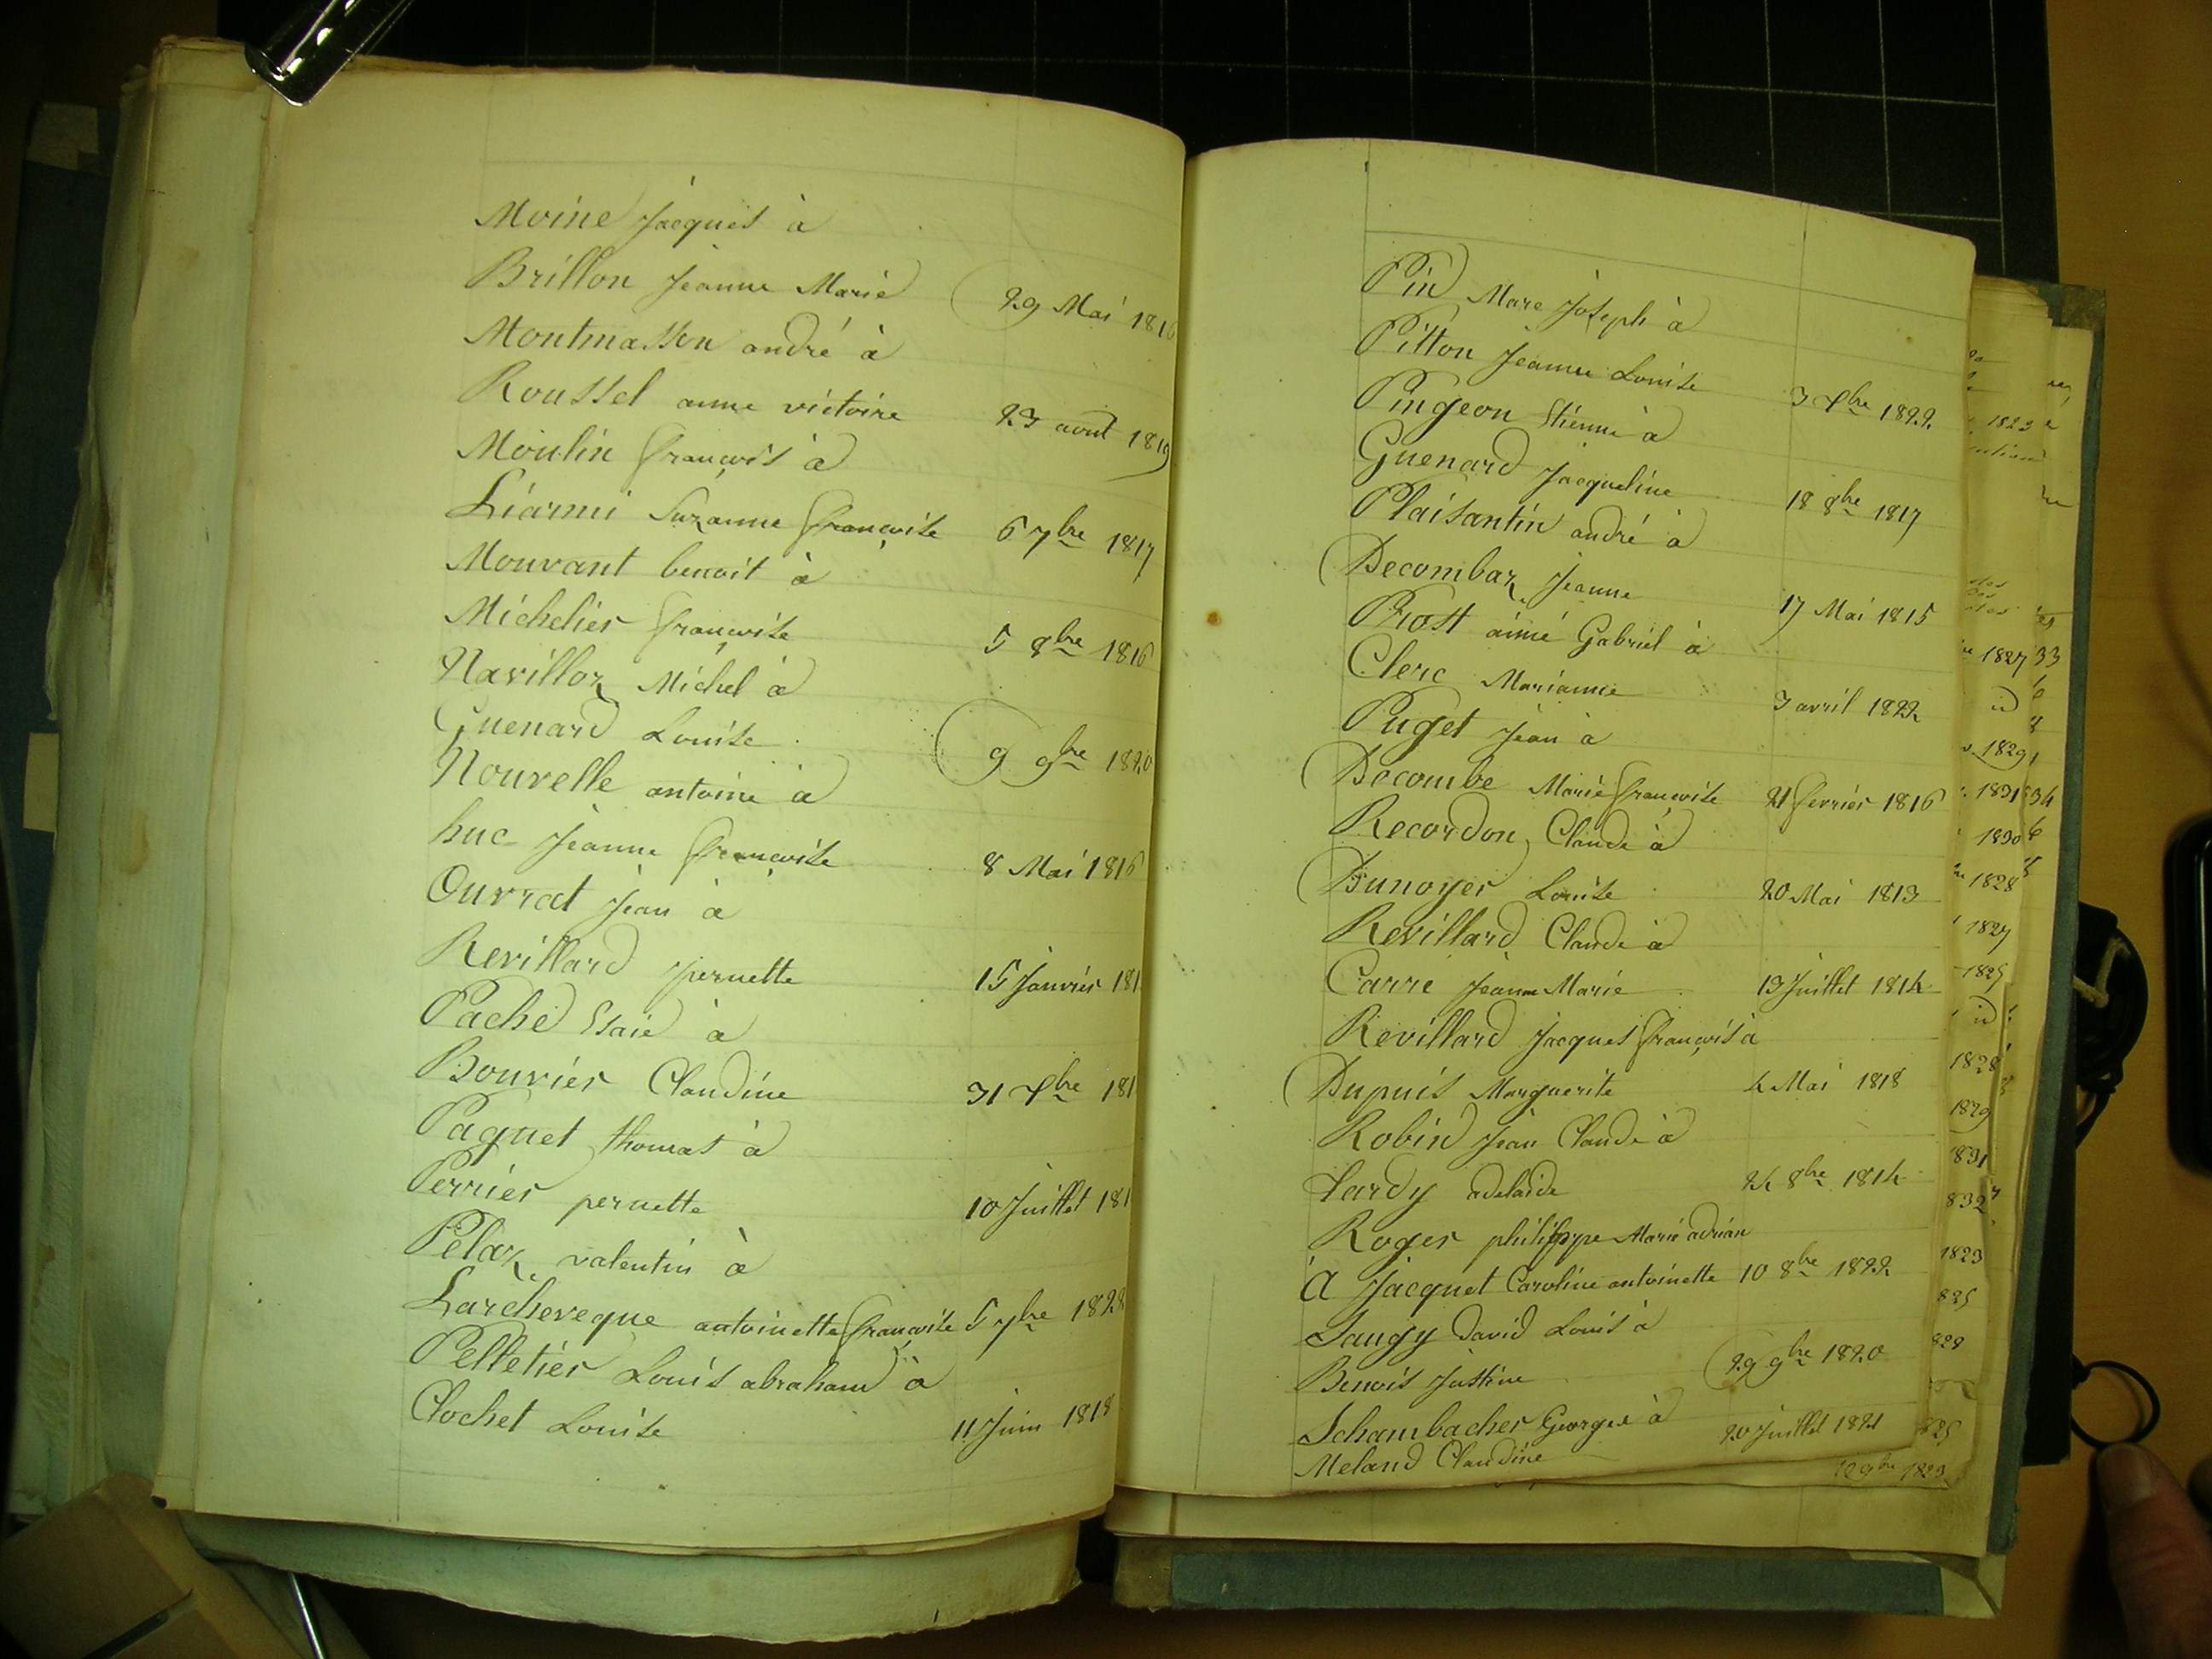 Moine Jacques à
Brillon Jeanne Marie 29 Mai 1816
Montmasson andré à
Roussel anne victoire 23 aout 1819
Moulin françois à
Liarmi Suzanne françoise 6 7bre 1817
Mouvant benoit à
Michelier françoise 5 8bre 1816
Navilloz Michel à
Guenard Louise 9 9bre 1820
Nouvelle antoine à
huc Jeanne françoise 8 Mai 1816
Ouvrat Jean à
Revillard pernette 15 Janvier 181
Pache Esaie à
Bouvier Claudine 31 Xbre 181
Paquet thomas à
Perrier pernette 10 Juillet 181
Pelaz valentin à
Larcheveque antoinette françoise 5 7bre 1822
Pelletier Louis abraham à
Clochet Louise 11 Juin 1818
Pin Marc Joseph à
Pitton Jeanne Louise 3 Xbre 1822
Pingeon Etienne à
Guenard Jacqueline 18 8bre 1817
Plaisantin andré à
Decombaz Jeanne 17 Mai 1815
Prost aimé Gabriel à
Clerc Marianne 3 avril 1822
Puget Jean à
Decombe Marie françoise 21 fevrier 1816
Recordon Claude à
Dunoyer Louise 20 Mai 1813
Revillard Claude à
Carre Jeanne Marie 13 Juillet 1814
Revillard Jacques françois à
Dupuis Marguerite 4 Mai 1818
Robin Jean Claude à
Tardy adelaide 24 8bre 1814
Roger philippe Marie adrian
à Jacquet Caroline antoinette 10 8bre 1822
Saugy David Louis à
Benois Justine 29 9bre 1820
Schambacher George à
Meland Claudine 20 Juillet 1821
1823
1827 33
id
1829
1831 34
1830
1828
1827
1825
id
1828
1829
1831
832
1823
825
828
825
12 9bre 1823